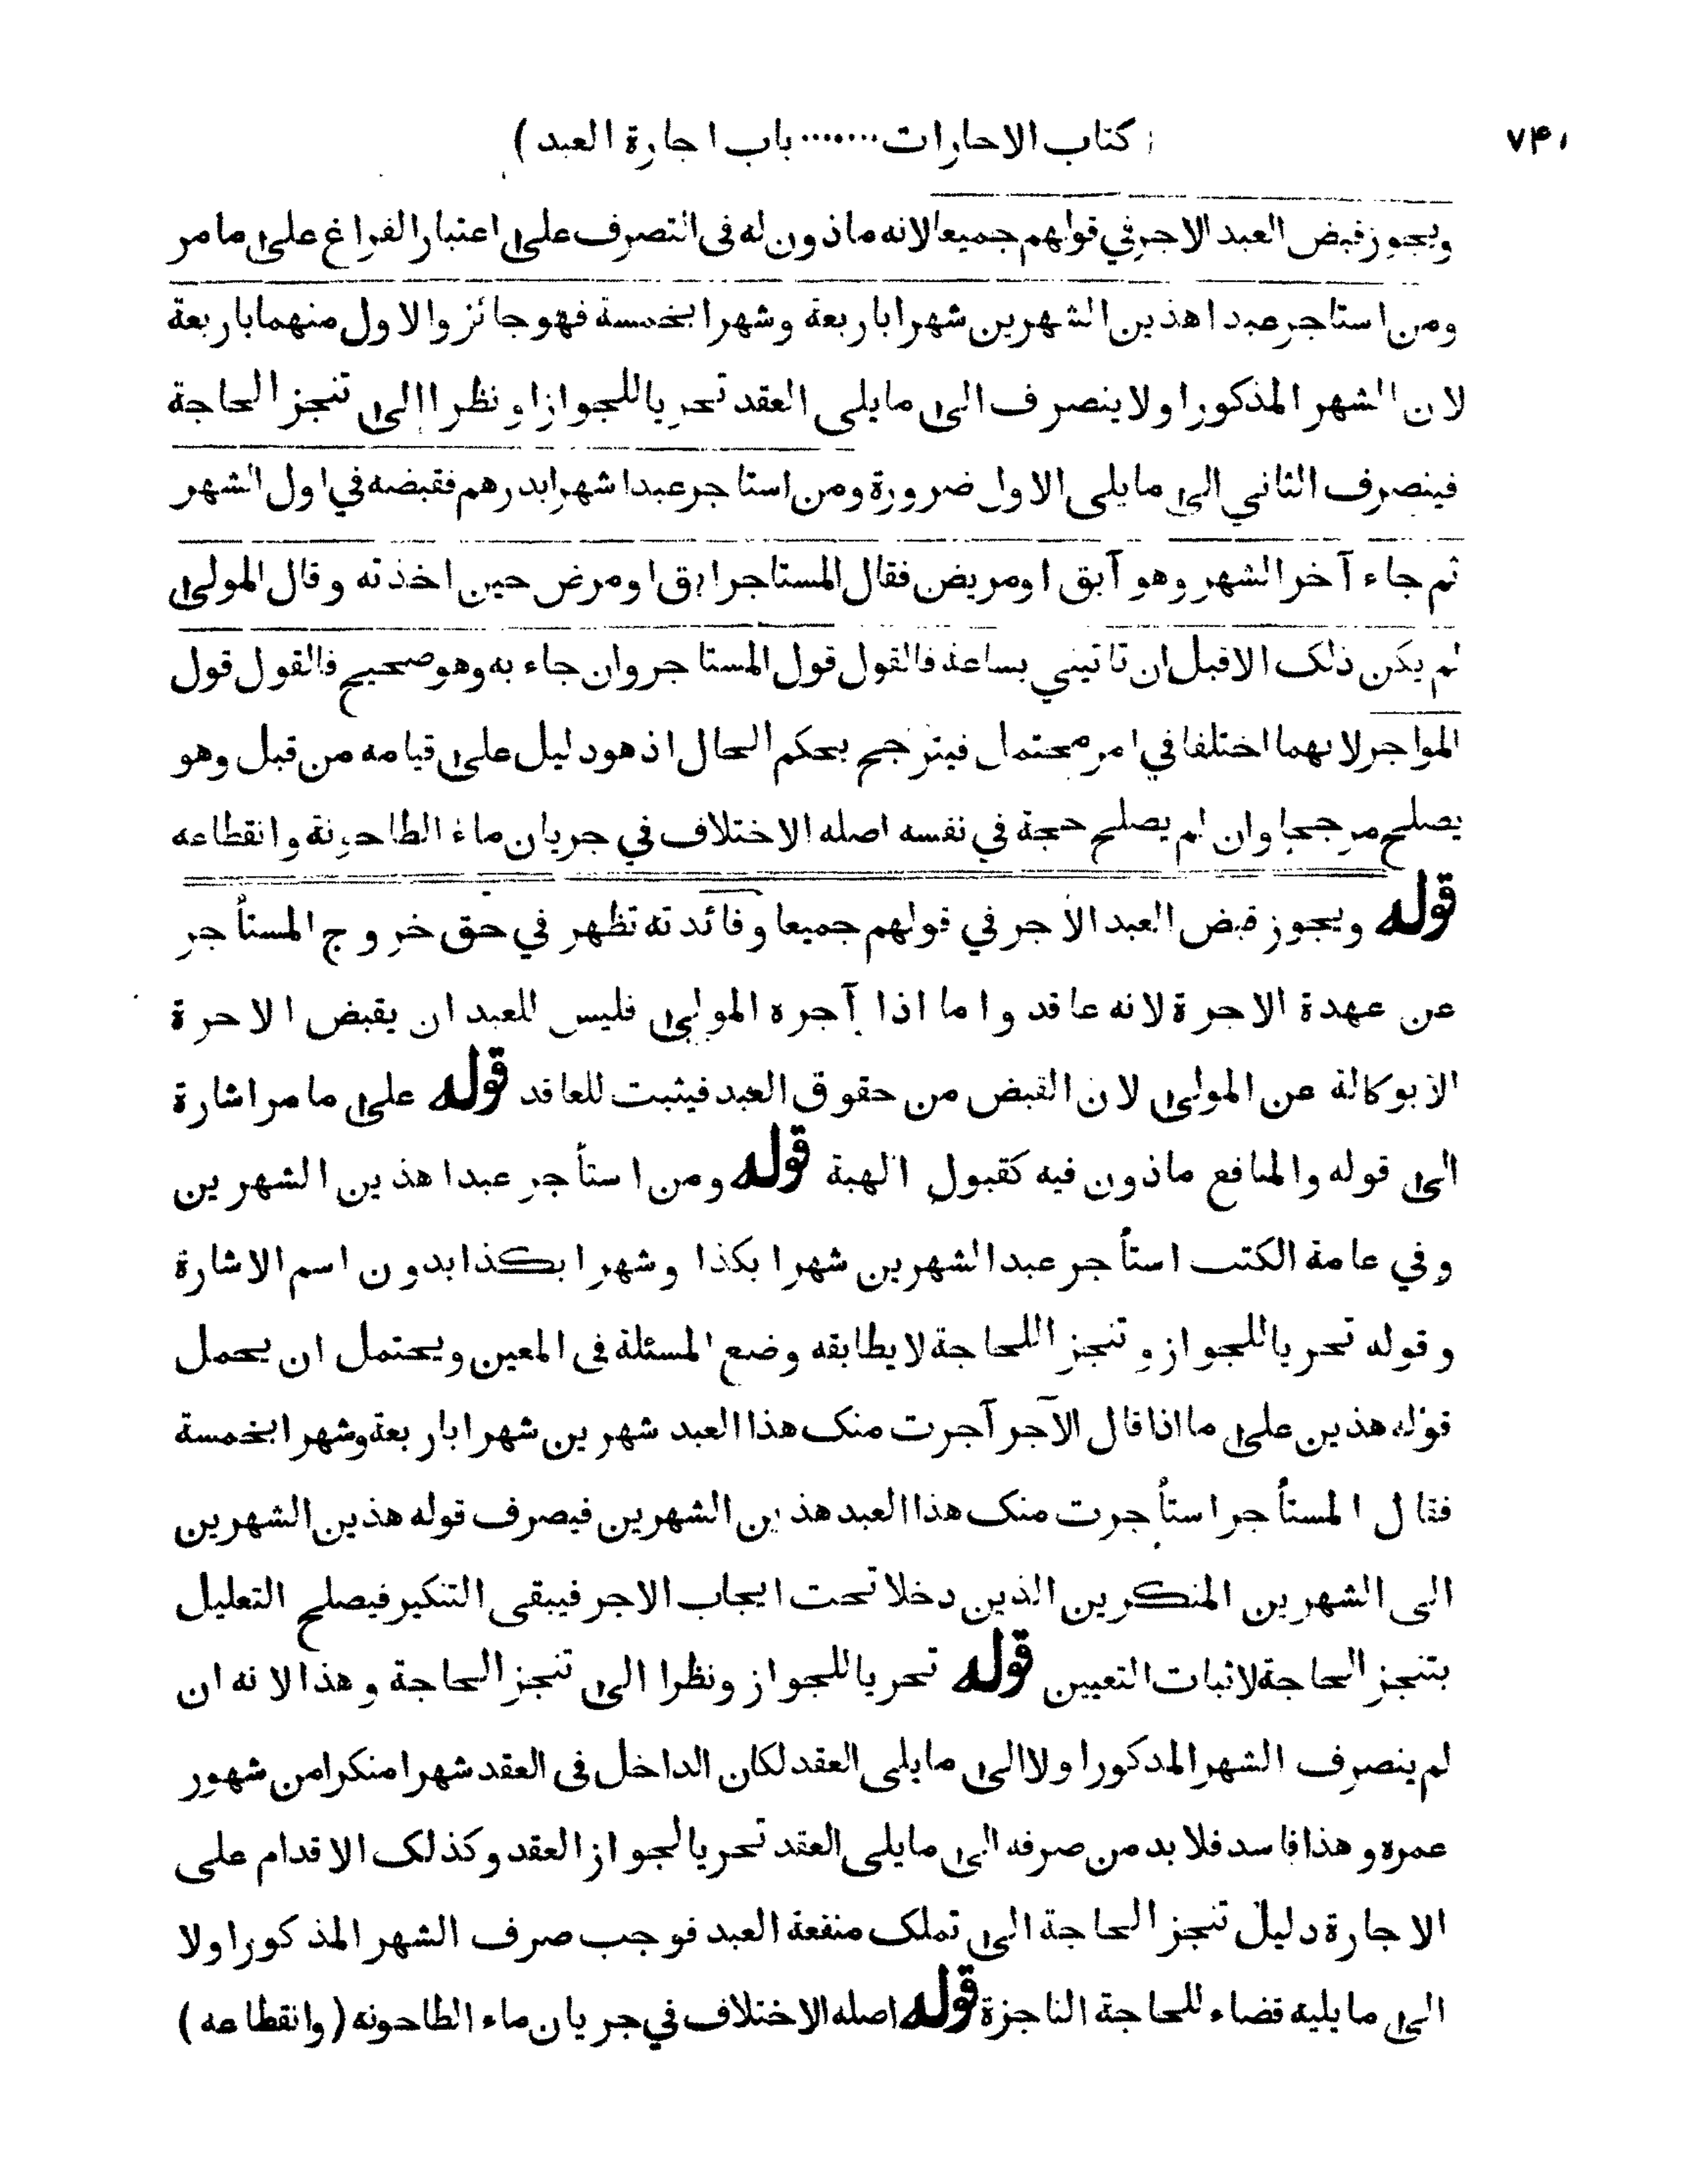 ( كتاب الاجارات ........ باب اجارة العبد )
ويجوز قبض العبد الاجر في قولهم جميعا لانه ماذون له فى التصرف على اعتبار الفراغ على ما مر
ومن استاجر عبدا هذين الشهرين شهرا باربعة وشهرا بخمسة فهو جائز والاول منهما باربعة
لان الشهر المذكور اولا ينصرف الى ما يلى العقد تحريا للجواز او نظرا الى تنجز الحاجة
فينصرف الثاني الى ما يلى الاول ضرورة ومن استاجر عبدا شهرا بدرهم فقبضه في اول الشهر
ثم جاء آخر الشهر وهو آبق او مريض فقال المستاجر ابق او مرض حين اخذته وقال المولى
لم يكن ذلك الا قبل ان تاتيني بساعة فالقول قول المستاجر وان جاء به وهو صحيح فالقول قول
المواجر لانهما اختلفا في امر محتمل فيترجح بحكم الحال اذ هو دليل على قيامه من قبل وهو
يصلح مرجحا وان لم يصلح حجة في نفسه اصله الاختلاف في جريان ماء الطاحونة وانقطاعه
قوله ويجوز قبض العبد الأجر في قولهم جميعا وفائدته تظهر في حق خروج المستأجر
عن عهدة الاجرة لانه عاقد واما اذا آجره المولى فليس للعبد ان يقبض الاجرة
الا بوكالة عن المولى لان القبض من حقوق العبد فيثبت للعاقد قوله على ما مر اشارة
الى قوله والمنافع ماذون فيه كقبول الهبة قوله ومن استأجر عبدا هذين الشهرين
وفي عامة الكتب استأجر عبدا لشهرين شهرا بكذا وشهرا بكذا بدون اسم الاشارة
وقوله تحريا للجواز وتنجز اللحاجة لا يطابقه وضع المسئلة فى المعين ويحتمل ان يحمل
قوله هذين على ما اذا قال الآجر آجرت منك هذا العبد شهرين شهرا باربعة وشهرا بخمسة
فقال المستأجر استأجرت منك هذا العبد هذين الشهرين فيصرف قوله هذين الشهرين
الى الشهرين المنكرين الذين دخلا تحت ايجاب الاجر فيبقى التنكير فيصلح التعليل
بتنجز الحاجة لاثبات التعيين قوله تحريا للجواز ونظرا الى تنجز الحاجة وهذا لانه ان
لم ينصرف الشهر المذكور اولا الى ما يلى العقد لكان الداخل فى العقد شهرا منكرا من شهور
عمره وهذا فاسد فلا بد من صرفه الى ما يلى العقد تحريا لجواز العقد وكذلك الاقدام على
الاجارة دليل تنجز الحاجة الى تملك منفعة العبد فوجب صرف الشهر المذكور اولا
الى ما يليه قضاء للحاجة الناجزة قوله اصله الاختلاف في جريان ماء الطاحونه (وانقطاعه)